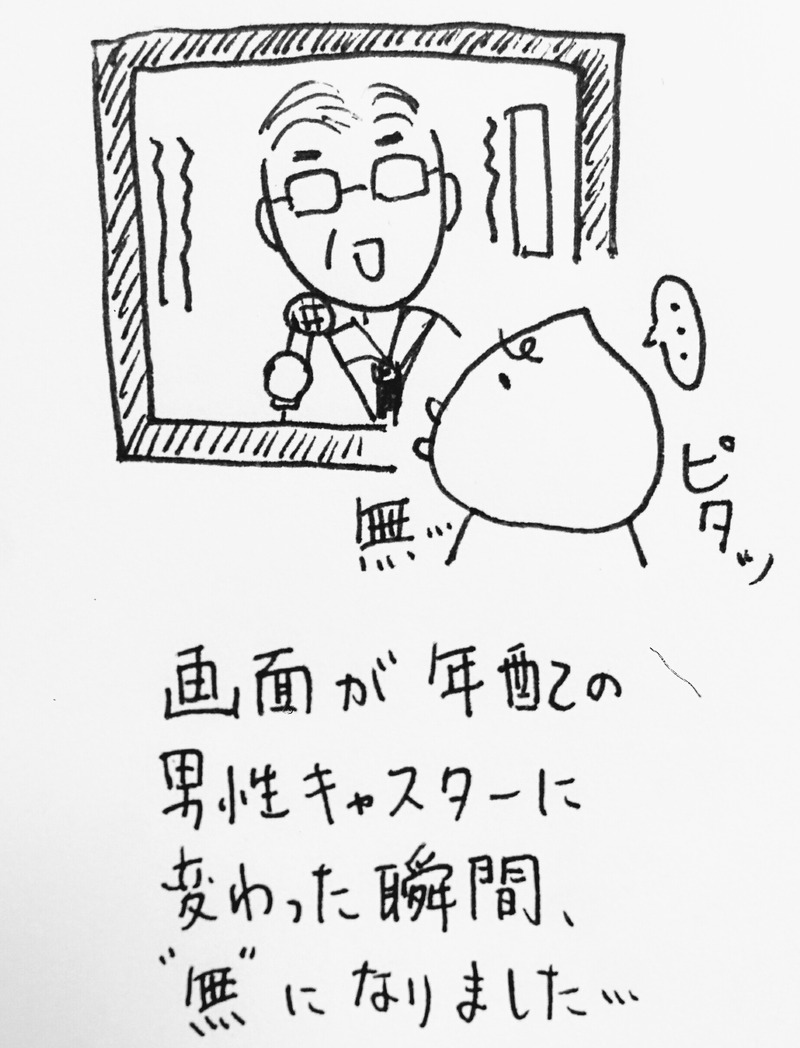 …
無…
ピタッ
画面が年配の
男性キャスターに
変わった瞬間、
"無"になりました…